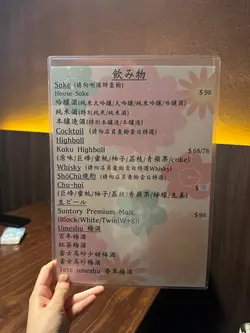 飲み物
Sake (請向唎酒師查詢)
House Sake $98
吟釀酒(純米大吟釀/大吟釀/純米吟釀/吟釀酒)
純米酒(特別純米/純米酒)
本釀造酒(特別本釀造酒/本釀造酒)
Cocktail (請向店員查詢當日特選)
Highball
Kaku Highball $68/78
(原味/巨峰/蜜桃/柚子/荔枝/青蘋果/coke)
Whisky (請向店員查詢當日特選Whisky)
ShoChu焼酌 (請向店員查詢當日特選)
Chu-hai $
(巨峰/蜜桃/柚子/荔枝/青蘋果/檸檬/生姜)
生ビール
Suntory Premium Malt $98
(Black/White/Twin(W+B))
Umeshu 梅酒
百年梅酒
紅茶梅酒
富士高砂少材梅酒
富士高砂梅酒
umeshu 香草梅酒